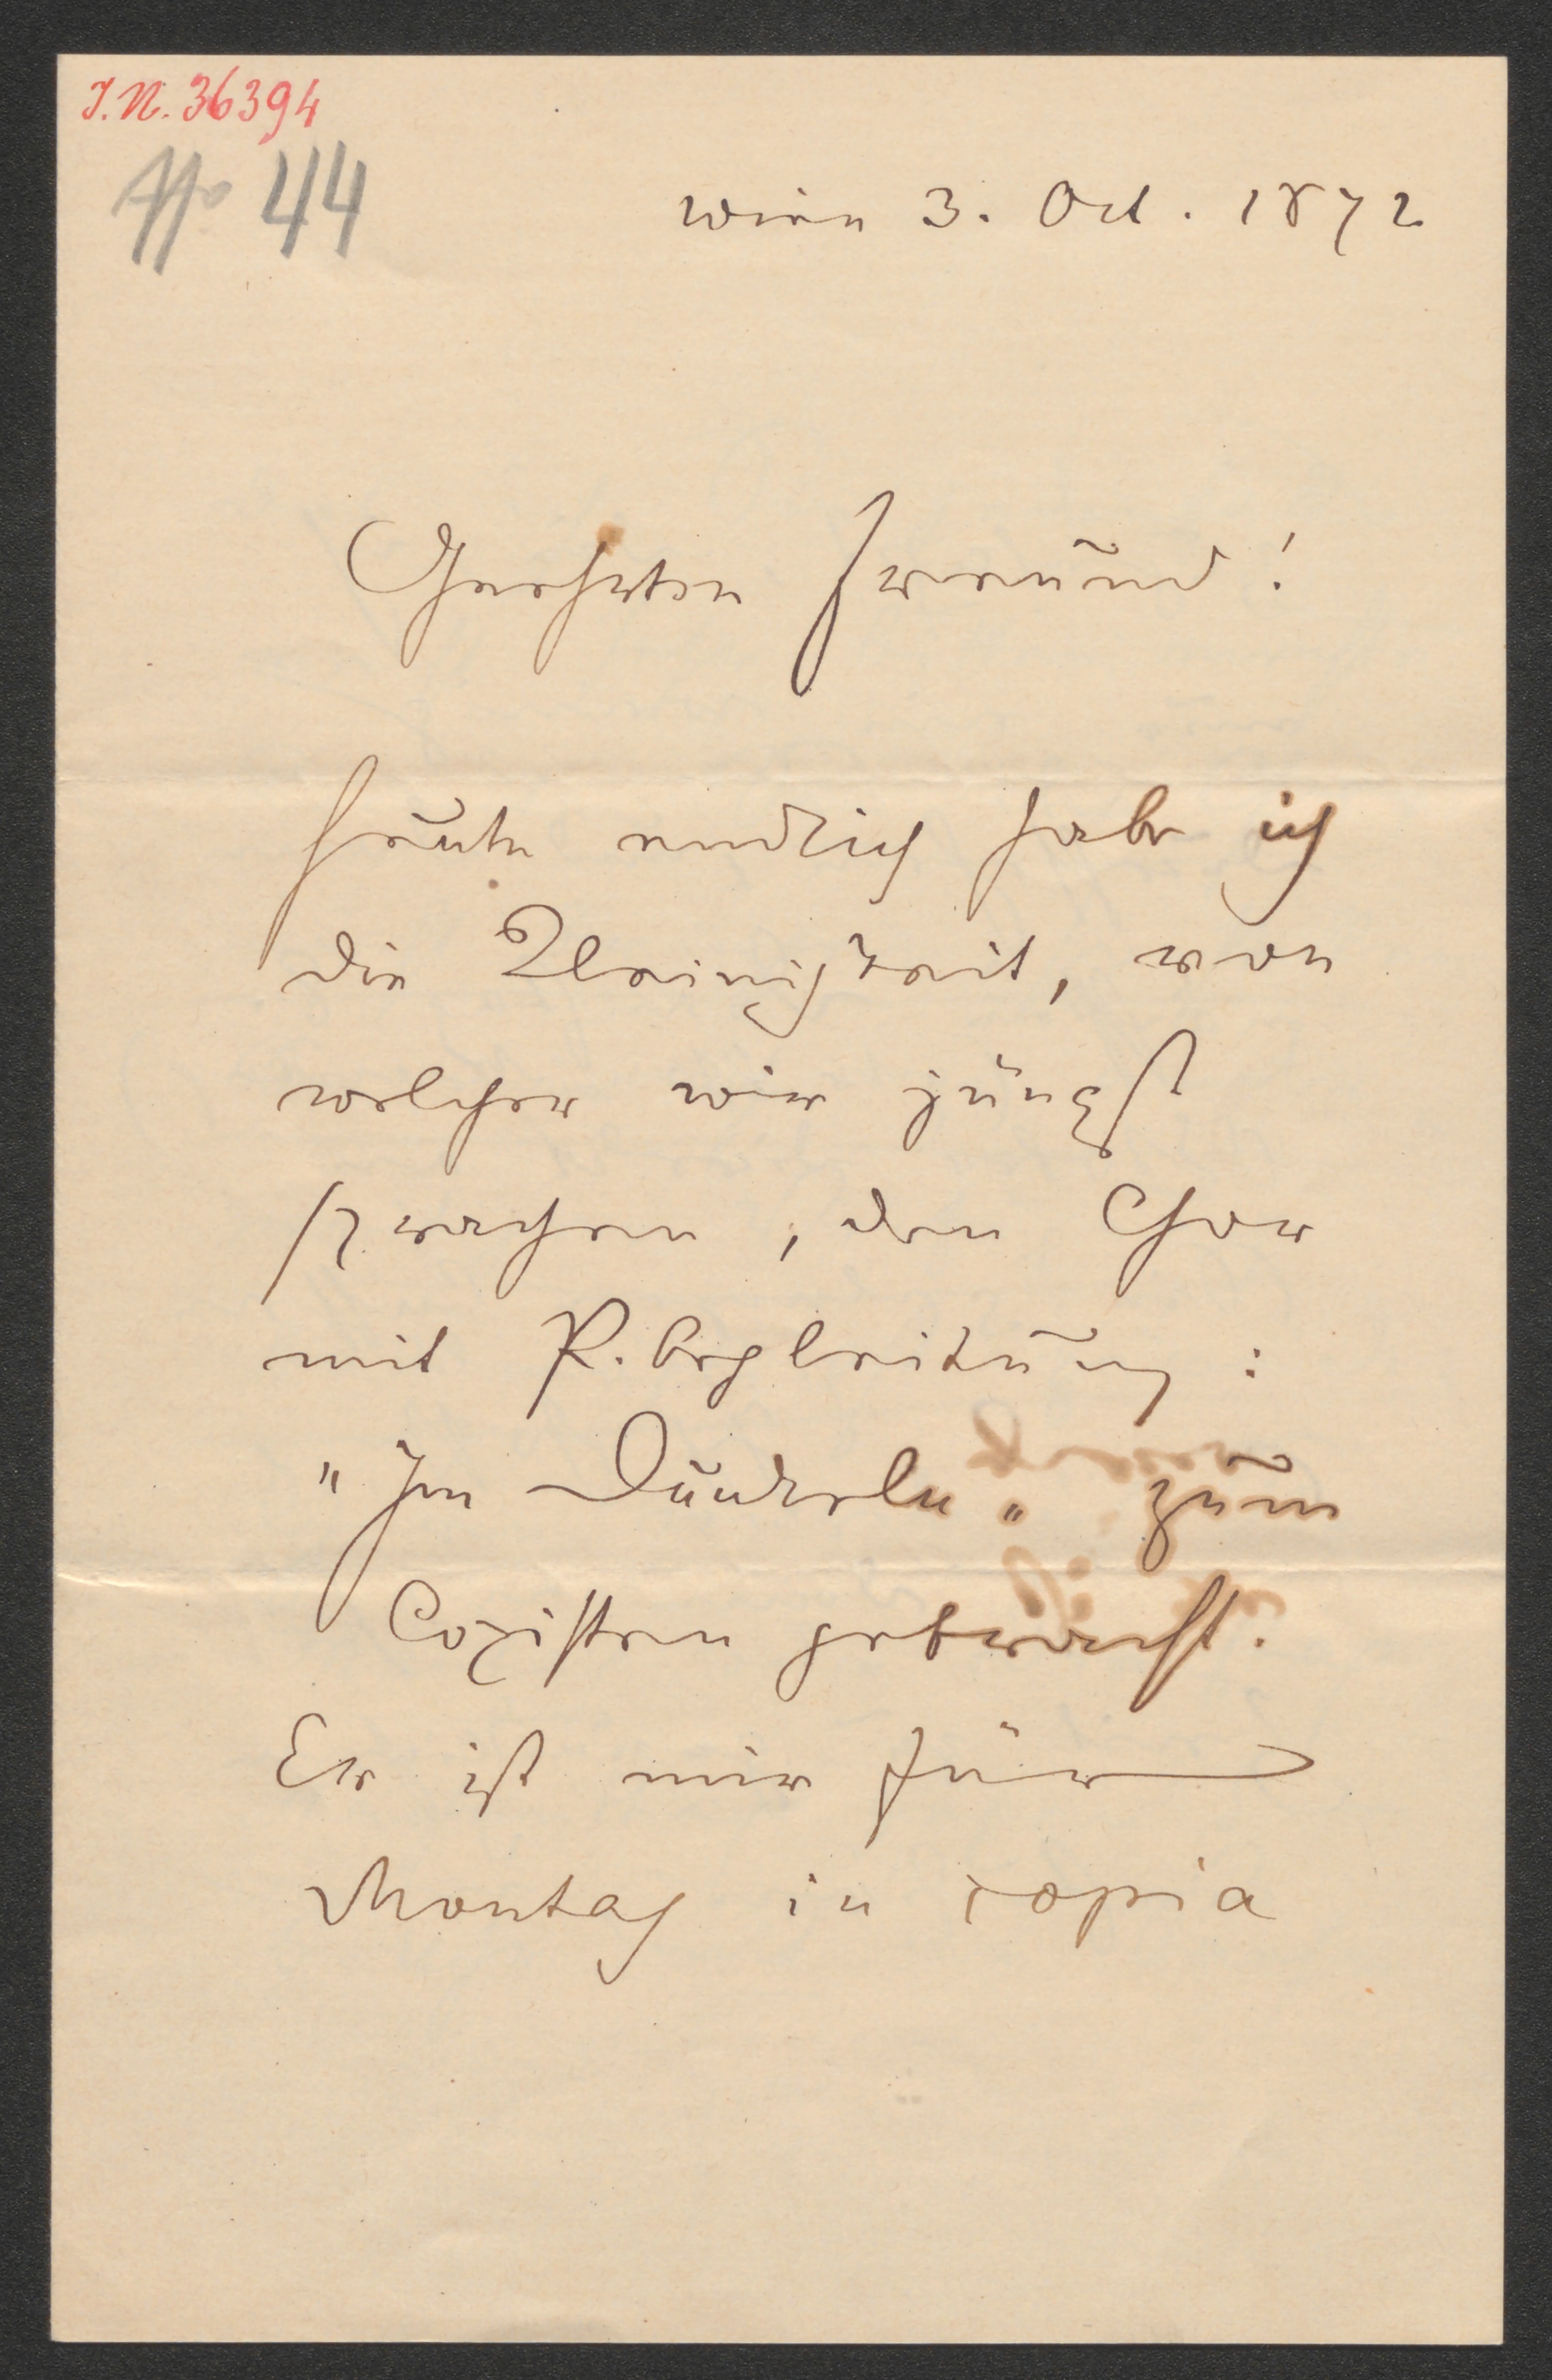 I.N. 36394
No 44
Wien 3. Oct. 1872
Geehrter Freund!
Heute endlich habe ich
die Kleinigkeit, von
welcher wir jüngst
sprachen, den Chor
mit P.begleitung:
"Im Dunkeln" zum
Copisten gebracht.
Er ist mir für
Montag in copia